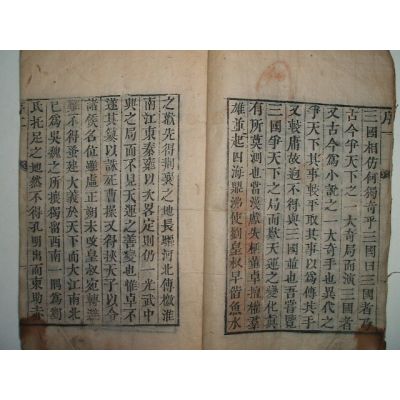 序一
三國相仿何獨奇乎三國曰三國者乃
古今爭天下之一大奇局而演三國者
又古今爲小說之一大奇手也異代之
爭天下其事較平取其事以爲傳其手
又較庸故迥不得與三國並也吾嘗覽
三國爭天下之局而歎天運之變化真
有所莫測也當漢獻失柄董卓擅權羣
雄並起四海鼎沸使劉皇叔早諧魚水
之歡先得荆襄之地長驅河北傳檄淮
南江東秦雍以次畧定則仍一光武中
興之局而不見天運之善變也惟卓不
遂其篡以誅死曹操又得挾天子以令
諸侯名位雖虛正朔未改皇叔宛轉避
難不得蚤建大義於天下而大江南北
已爲吳魏之所攘獨留西南一隅爲劉
氏托足之地然不得孔明出而東助赤
序二